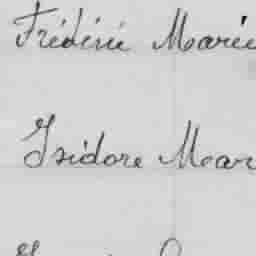 Frédéric Marie
Isidore Mar